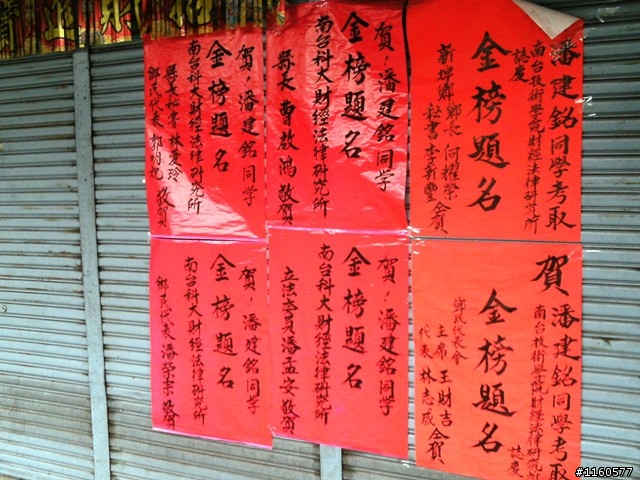 進財旺
潘建銘同學考取
南台技術學院財經法律研究所
誌慶
金榜題名
新埤鄉 鄉長 何耀榮
秘書 李新豐 仝賀
賀！潘建銘同學
金榜題名
南台科大財經法律研究所
縣長 曹啟鴻 敬賀
賀！潘建銘同學
金榜題名
南台科大財經法律研究所
縣長秘書 林愛玲
鄉民代表 敬賀
賀 潘建銘同學考取
南台技術學院財經法律研究所
誌慶
金榜題名
鄉民代表會
主席 王財吉
代表 林志成 仝賀
賀！潘建銘同學
金榜題名
南台科大財經法律研究所
立法委員 潘孟安 敬賀
賀！潘建銘同學
金榜題名
南台科大財經法律研究所
鄉民代表 潘榮宗 敬賀
#1160577